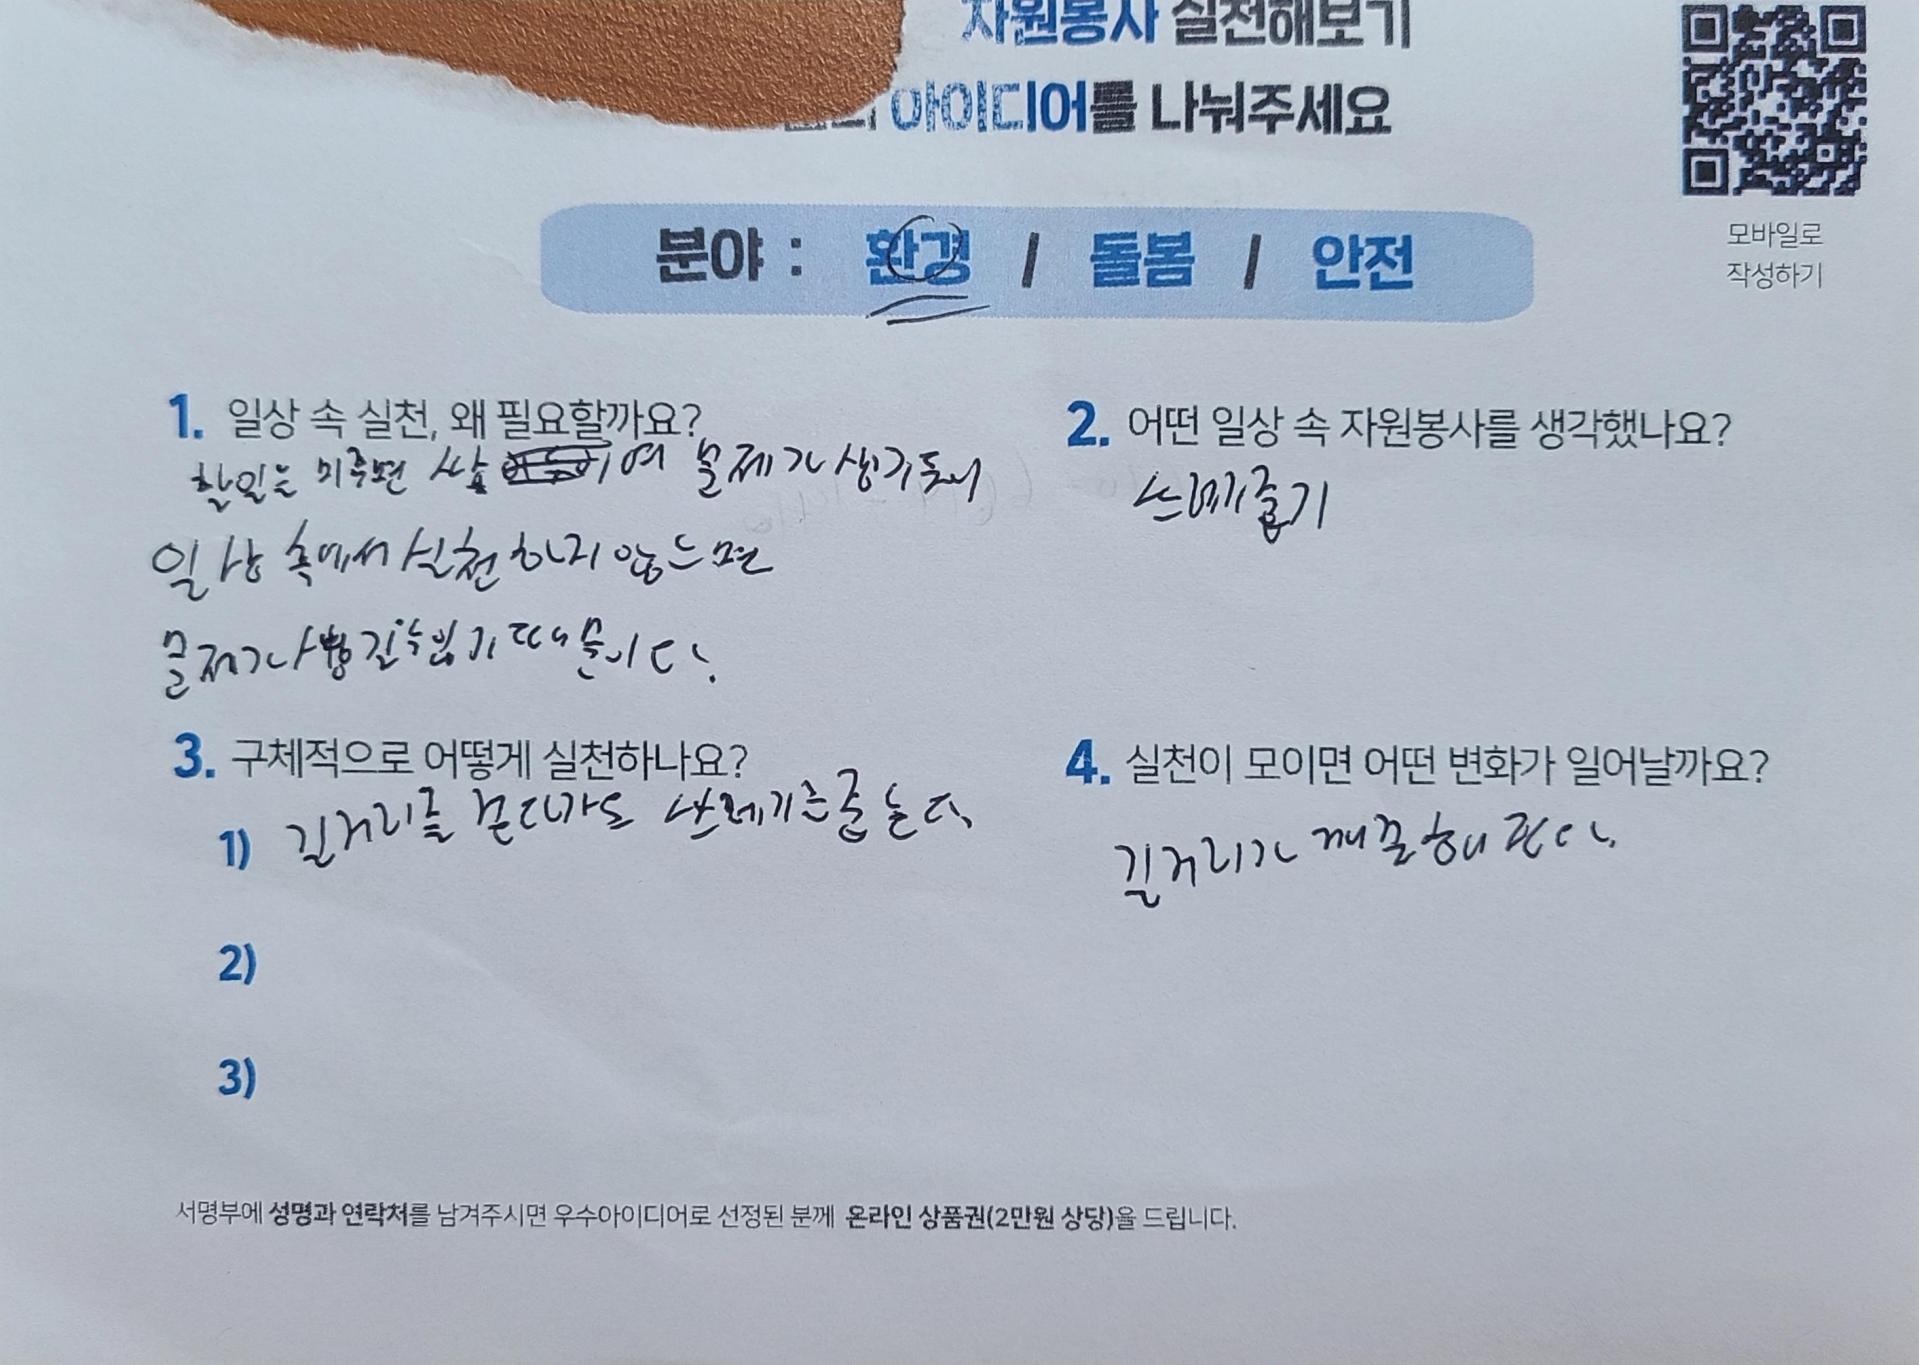 자원봉사 실천해보기
아이디어를 나눠주세요
모바일로
작성하기
분야 : 환경 / 돌봄 / 안전
1. 일상 속 실천, 왜 필요할까요?
할일을 미루면 쌓여 문제가 생기듯이
일상 속에서 실천하지 않으면
문제가 생길수있기 때문이다.
2. 어떤 일상 속 자원봉사를 생각했나요?
쓰레기줍기
3. 구체적으로 어떻게 실천하나요?
1) 길거리를 걷다가도 쓰레기를 줍는다.
2)
3)
4. 실천이 모이면 어떤 변화가 일어날까요?
길거리가 깨끗해진다.
서명부에 성명과 연락처를 남겨주시면 우수아이디어로 선정된 분께 온라인 상품권(2만원 상당)을 드립니다.